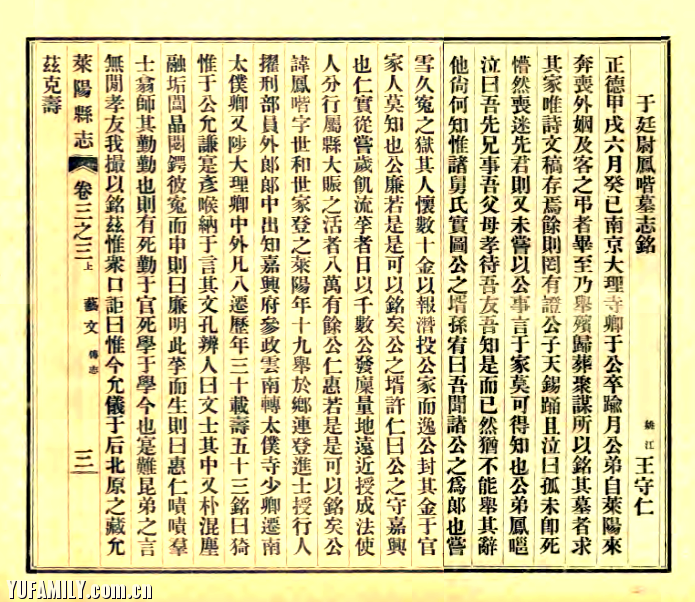 于廷尉鳳喈墓志銘
姚江 王守仁
正德甲戌六月癸巳南京大理寺卿于公卒踰月公弟自萊陽來
奔喪外姻及客之弔者畢至乃舉殯歸葬聚謀所以銘其墓者求
其家唯詩文稿存焉餘則罔有證公子天錫踊且泣曰孤未即死
懵然喪迷先君則又未嘗以公事言于家莫可得知也公弟鳳喈
泣曰吾先兄事吾父母孝待吾友吾知是而已然猶不能舉其辭
他尚何知惟諸舅氏實圖公之壻孫宥曰吾聞諸公之為郎也嘗
雪久冤之獄其人懷數十金以報潛投公家而逸公封其金于官
家人莫知也公廉若是是可以銘矣公之壻許仁曰公之守嘉興
也仁實從嘗歲飢流莩者日以千數公發廩量地遠近授成法使
人分行屬縣大賑之活者八萬有餘公仁惠若是是可以銘矣公
諱鳳喈字世和世家登之萊陽年十九舉於鄉連登進士授行人
擢刑部員外郎郎中出知嘉興府參政雲南轉太僕寺少卿遷南
太僕卿又陟大理卿中外凡八遷歷年三十載壽五十三銘曰猗
惟于公允謙寔彥喉納于言其文孔辨人曰文士其中又朴混塵
融垢闇晶閟鍔彼寃而申則曰廉明此莩而生則曰惠仁嘖嘖羣
士翕師其勤勤也則有死勤于官死學于學今也寔難昆弟之言
無閒孝友我撮以銘茲惟衆口詎曰惟今允儀于后北原之藏允
萊陽縣志 卷三之三上 藝文 傳志 三
茲克壽
YUFAMILY.com.cn